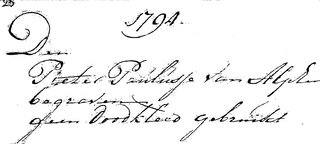 1794.
Den
Pieter Paulusse van Alphen
begraven
geen doodkleed gebruikt